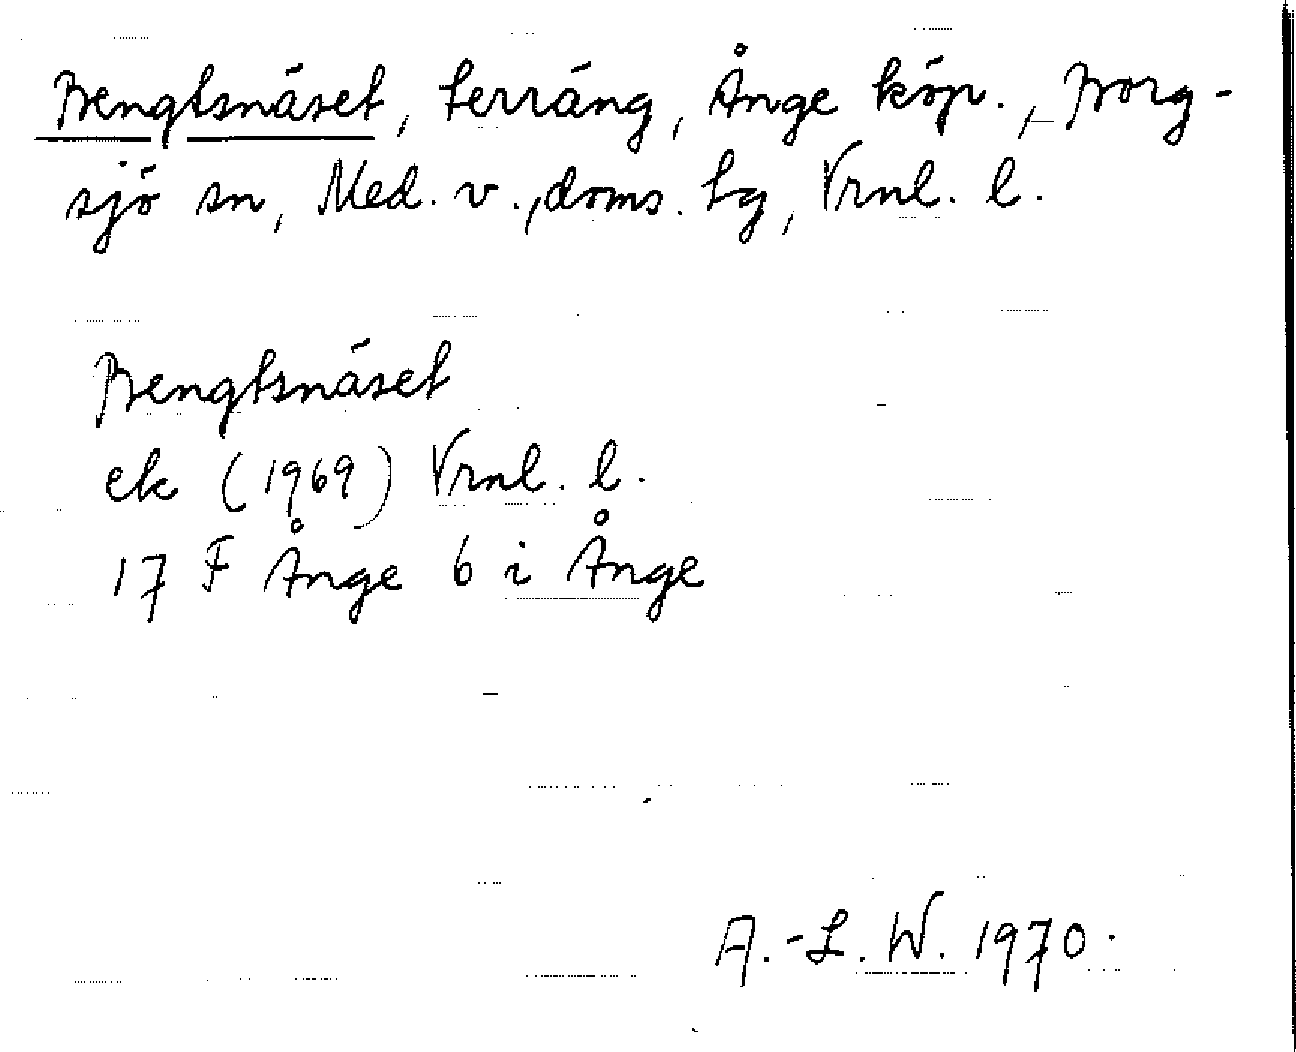 Bengtsnäset, terräng, Ånge köp., Borg-
sjö sn, Med. v., doms. lg, Vrnl. l.
Bengtsnäset
ek (1969) Vrnl. l.
17 F Ånge 6 i Ånge
A.-L. W. 1970.